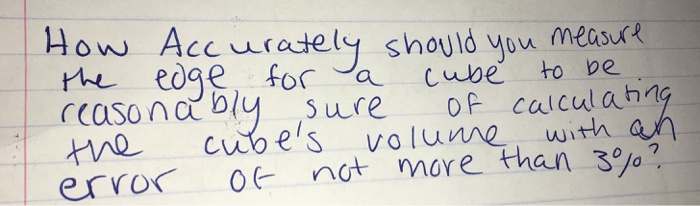 How Accurately should you measure
the edge for a cube to be
reasonably sure of calculating
the cube's volume with an
error of not more than 3%?